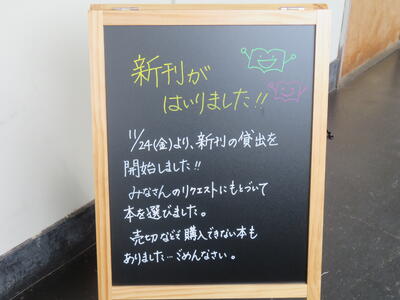 新刊が
はいりました!!
11/24(金)より、新刊の貸出を
開始しました!!
みなさんのリクエストにもとづいて
本を選びました。
売切などで購入できない本も
ありました…ごめんなさい。